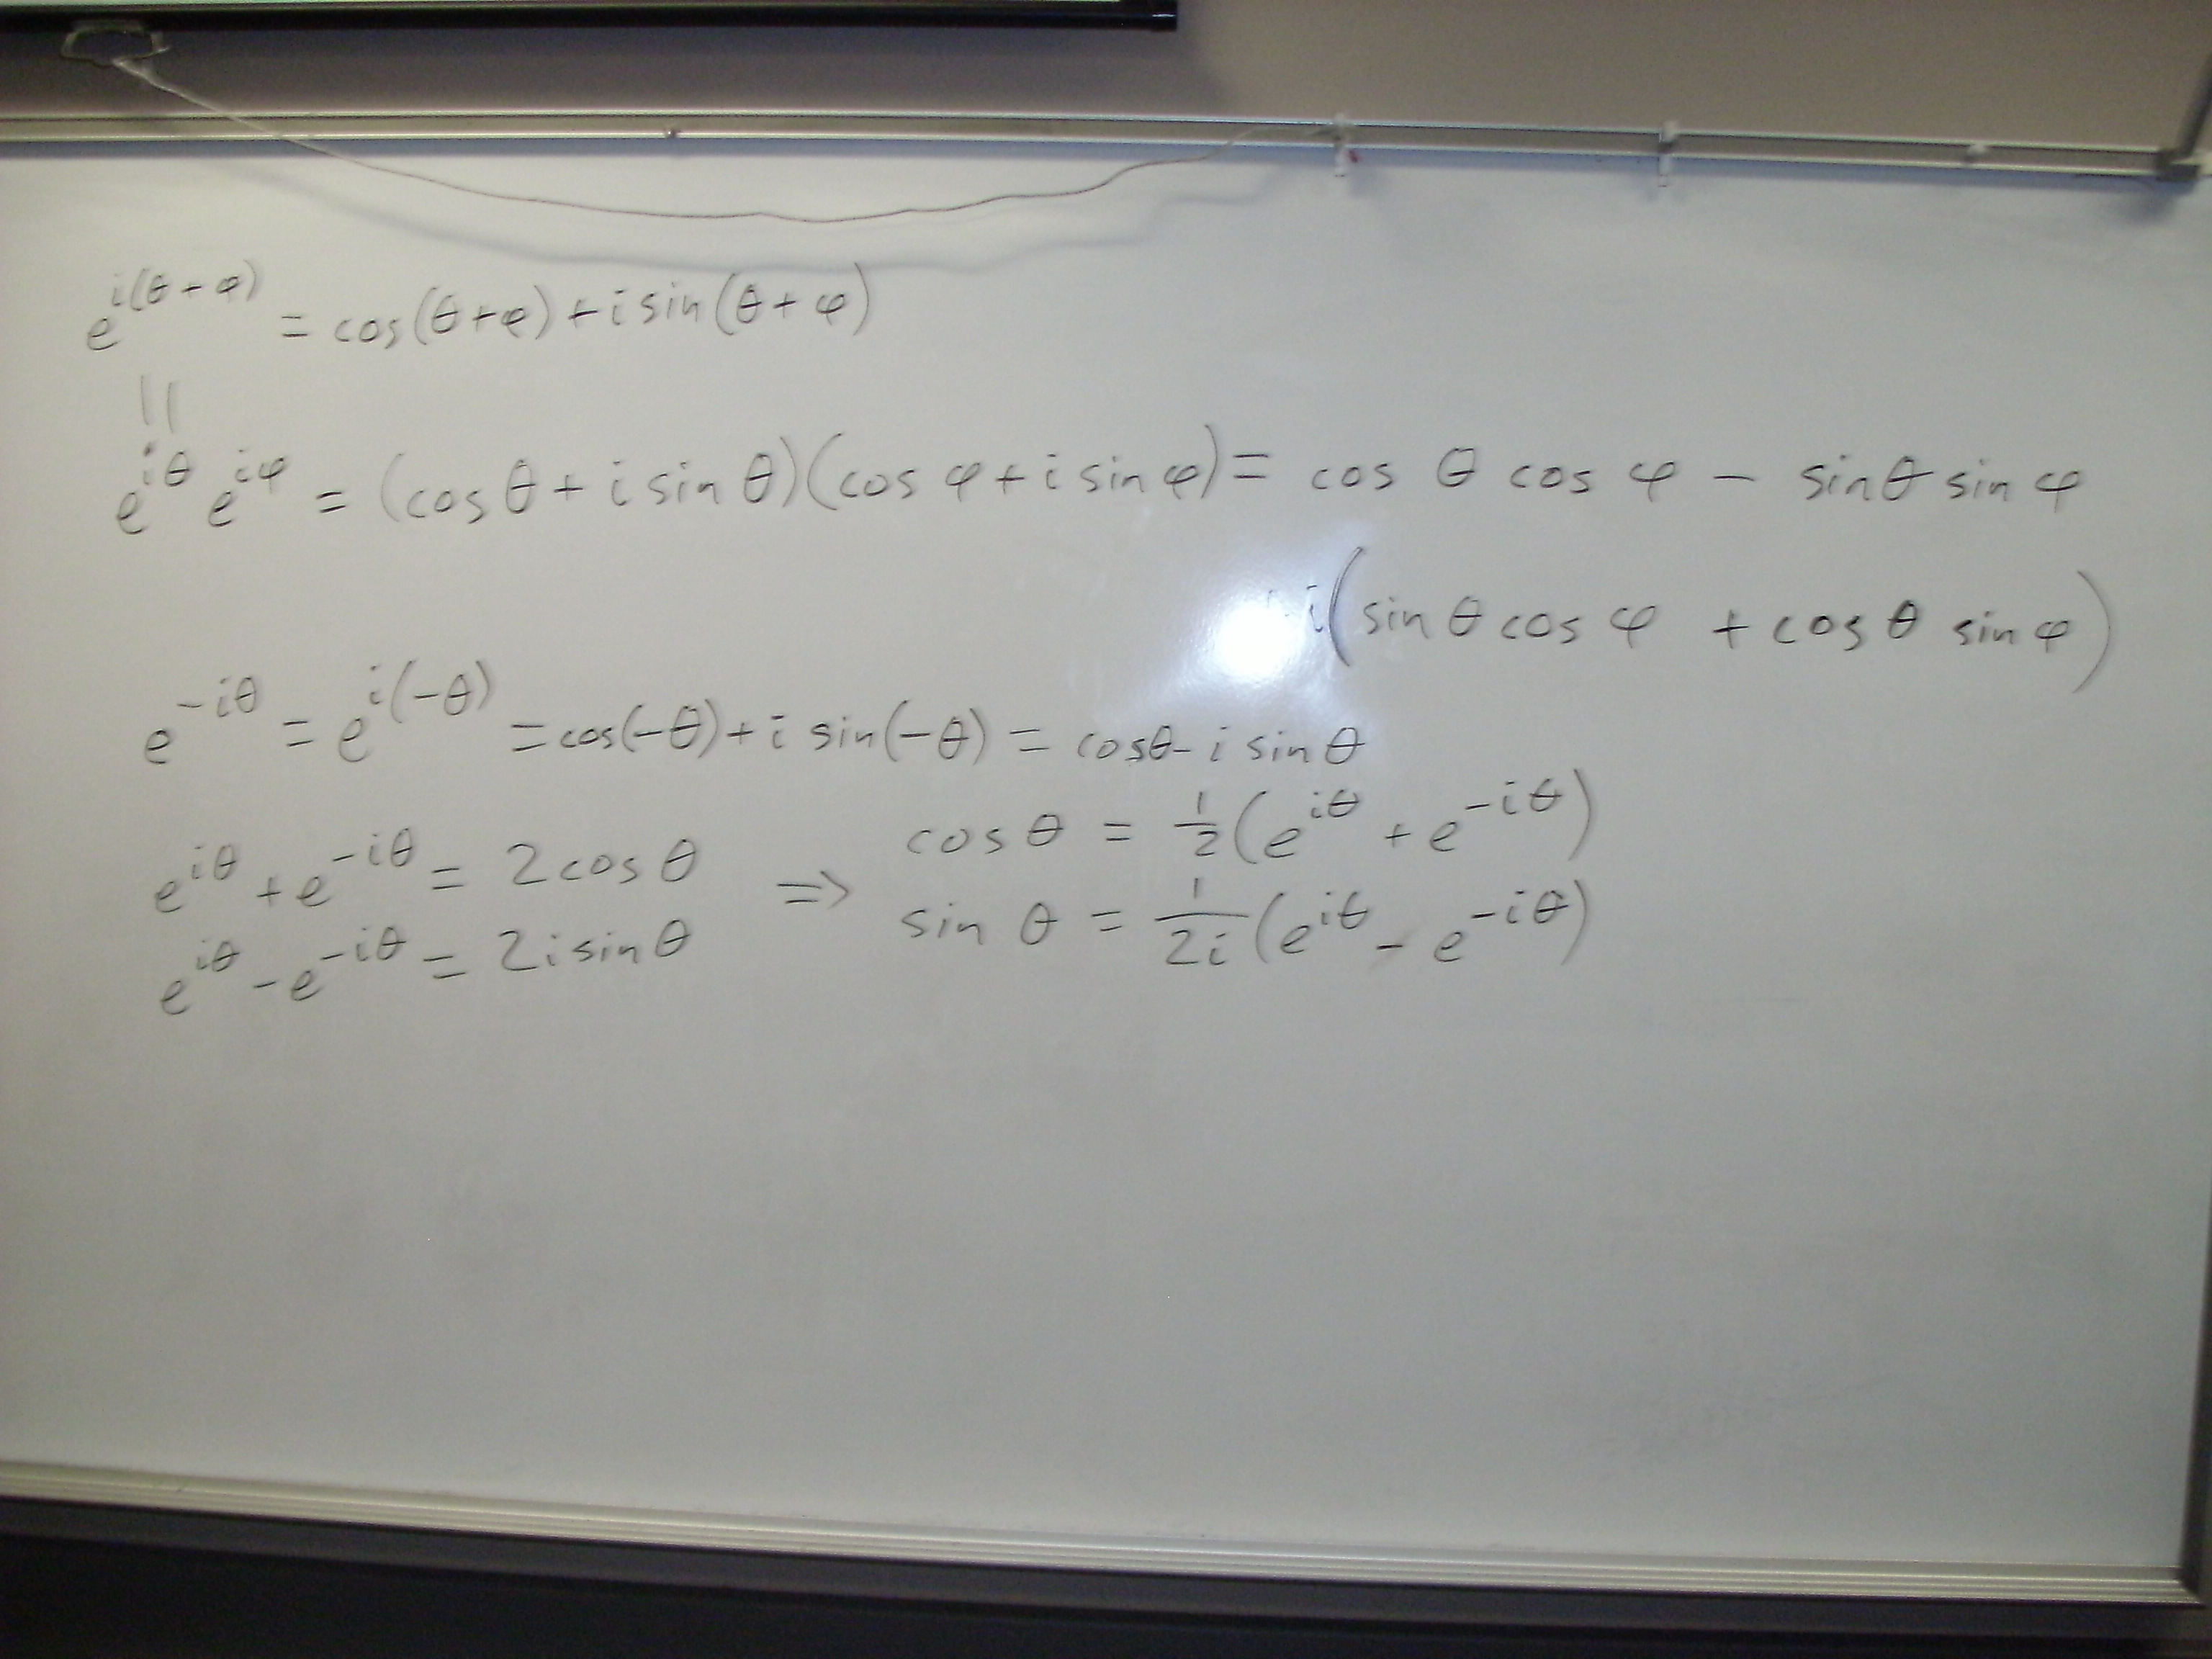 e^{i(θ+φ)} = cos(θ+φ) + i sin(θ+φ)
||
e^{iθ} e^{iφ} = (cos θ + i sin θ)(cos φ + i sin φ) = cos θ cos φ − sin θ sin φ
+ i(sin θ cos φ + cos θ sin φ)
e^{−iθ} = e^{i(−θ)} = cos(−θ) + i sin(−θ) = cosθ − i sin θ
e^{iθ} + e^{−iθ} = 2 cos θ ⇒ cos θ = 1/2 (e^{iθ} + e^{−iθ})
e^{iθ} − e^{−iθ} = 2 i sin θ sin θ = 1/2i (e^{iθ} − e^{−iθ})